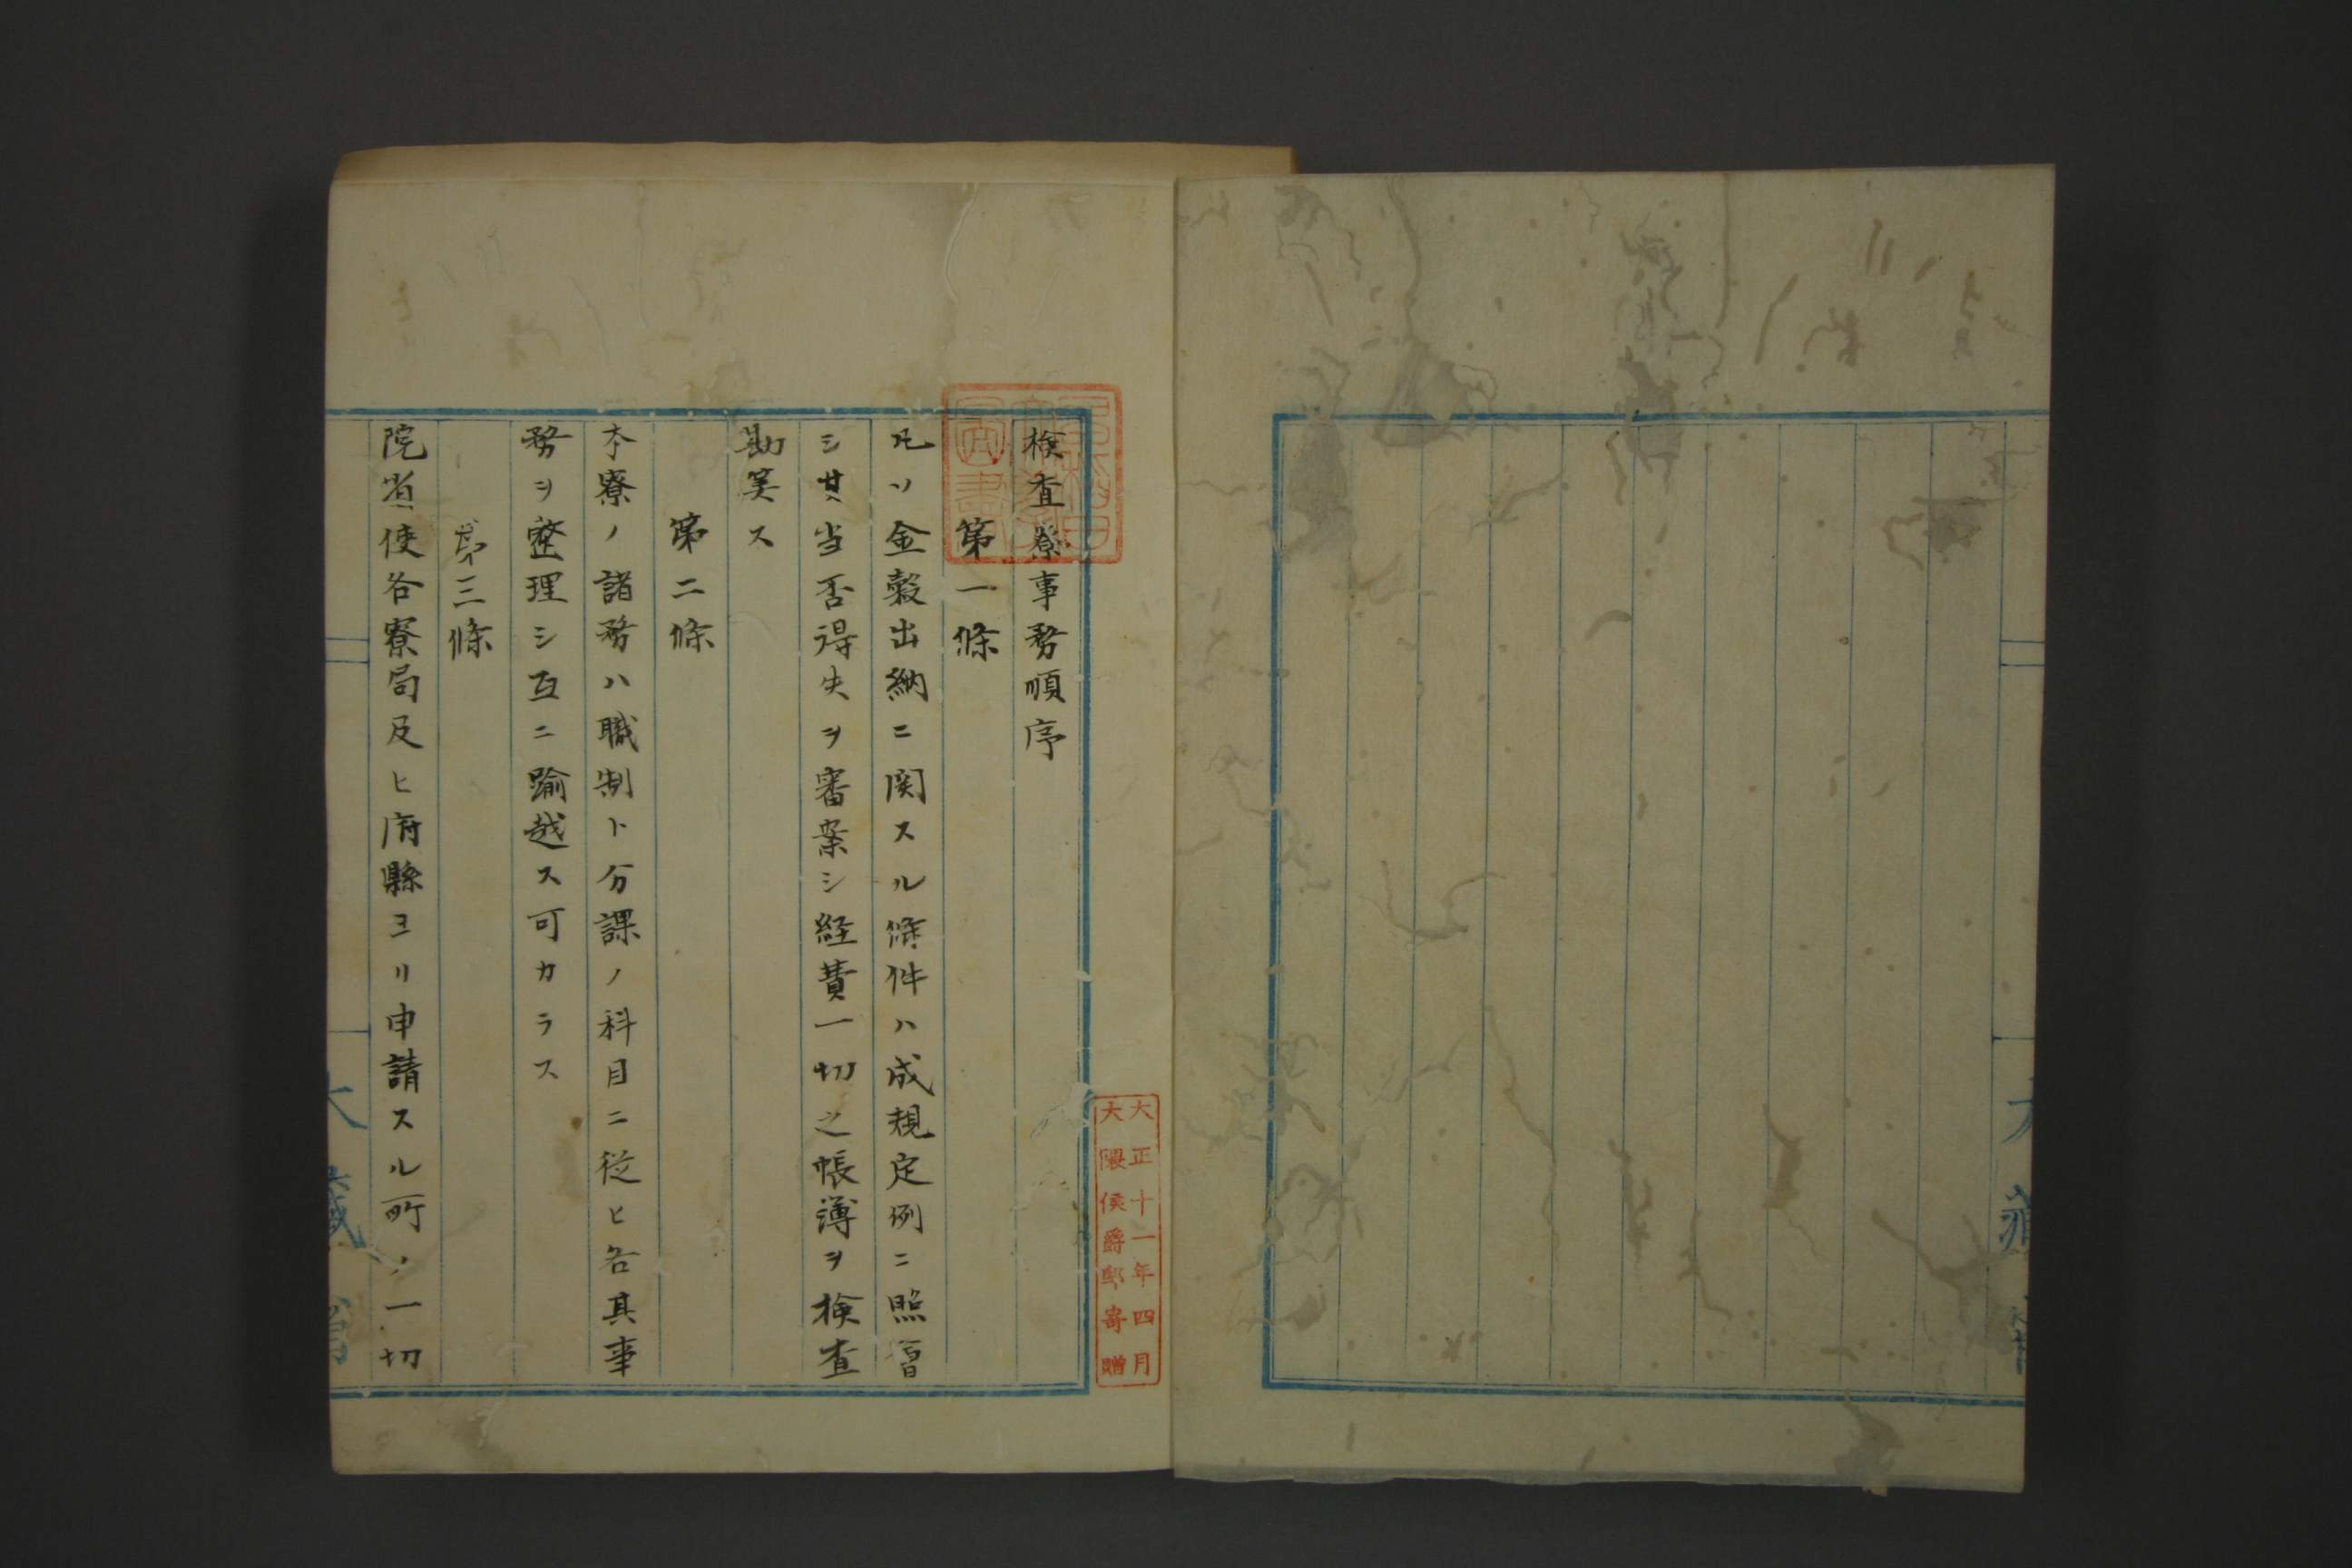 検査寮事務順序
第一條
凡ソ金穀出納ニ関スル條件ハ成規定例ニ照準
シ其当否得失ヲ審案シ経費一切之帳簿ヲ検査
勘算ス
第二條
本寮ノ諸務ハ職制ト分課ノ科目ニ従ヒ各其事
務ヲ整理シ互ニ踰越ス可カラス
第三條
院省使各寮局及ヒ府縣ヨリ申請スル所ノ一切
大正十一年四月
大隈侯爵邸寄贈
大藏省
大藏省